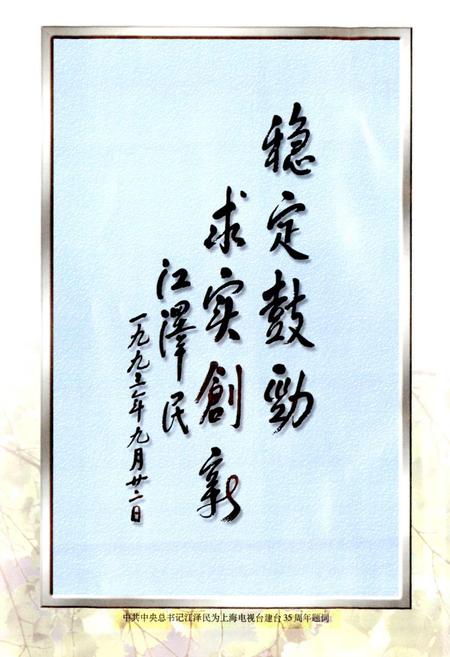 稳定鼓劲
求实創新
江澤民
一九九三年九月廿二日
中共中央总书记江泽民为上海电视台建台35周年题词